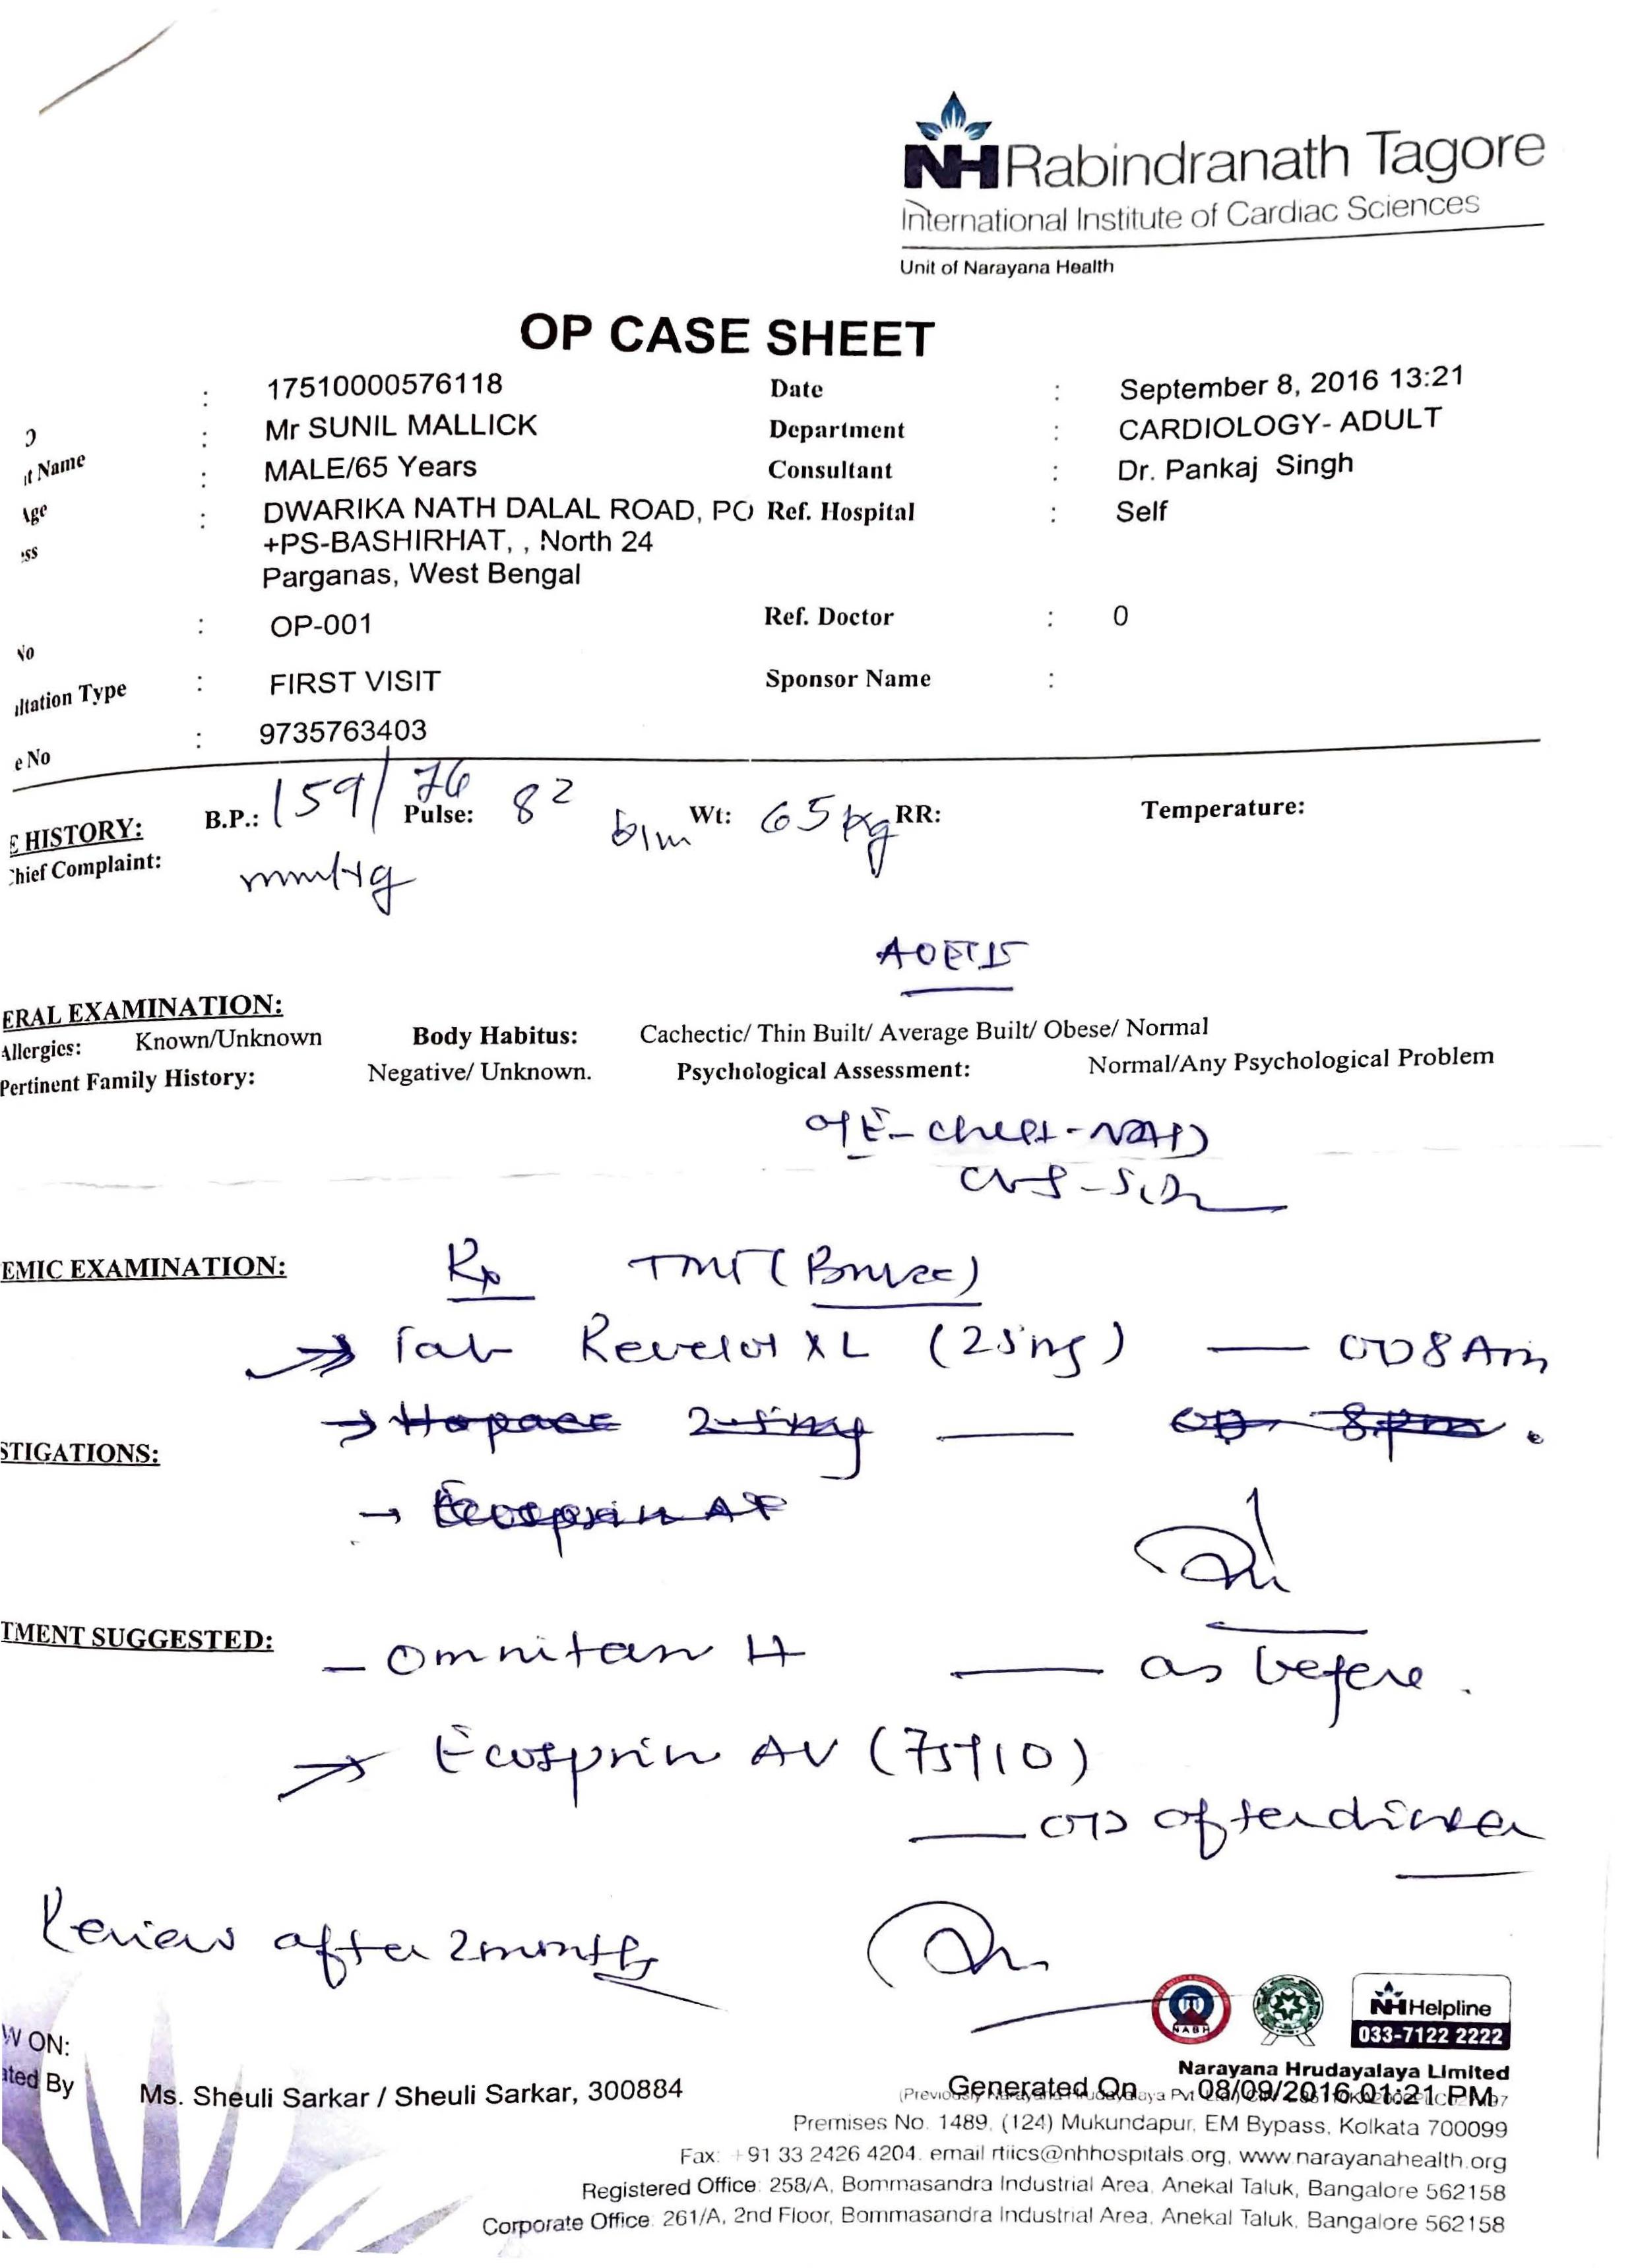 NH Rabindranath Tagore
International Institute of Cardiac Sciences
Unit of Narayana Health
OP CASE SHEET
: 17510000576118 Date : September 8, 2016 13:21
t Name : Mr SUNIL MALLICK Department : CARDIOLOGY- ADULT
Age : MALE/65 Years Consultant : Dr. Pankaj Singh
ess : DWARIKA NATH DALAL ROAD, PO Ref. Hospital : Self
+PS-BASHIRHAT, , North 24
Parganas, West Bengal
No : OP-001 Ref. Doctor : 0
ultation Type : FIRST VISIT Sponsor Name :
e No : 9735763403
E HISTORY: B.P.: 159/76 Pulse: 82 b/m Wt: 65 kg RR: Temperature:
Chief Complaint: mmHg
ERAL EXAMINATION:
Allergies: Known/Unknown Body Habitus: Cachectic/ Thin Built/ Average Built/ Obese/ Normal
Pertinent Family History: Negative/ Unknown. Psychological Assessment: Normal/Any Psychological Problem
O/E - chest - NAD
CVS - S1S2
EMIC EXAMINATION: Rx TMT (Bruce)
→ Tab Revelol XL (25mg) — OD 8 Am
→ Hopace 2.5mg — OD 8pm.
STIGATIONS:
→ Ecosprin AF
TMENT SUGGESTED: – Omnitan H — as before.
→ Ecosprin AV (75/10)
— OD after dinner
Review after 2 months
NABH
NH Helpline
033-7122 2222
W ON:
ated By Ms. Sheuli Sarkar / Sheuli Sarkar, 300884 Generated On 08/09/2016 01:21 PM
Narayana Hrudayalaya Limited
Premises No. 1489, (124) Mukundapur, EM Bypass, Kolkata 700099
Fax: +91 33 2426 4204, email rtiics@nhhospitals.org, www.narayanahealth.org
Registered Office: 258/A, Bommasandra Industrial Area, Anekal Taluk, Bangalore 562158
Corporate Office: 261/A, 2nd Floor, Bommasandra Industrial Area, Anekal Taluk, Bangalore 562158